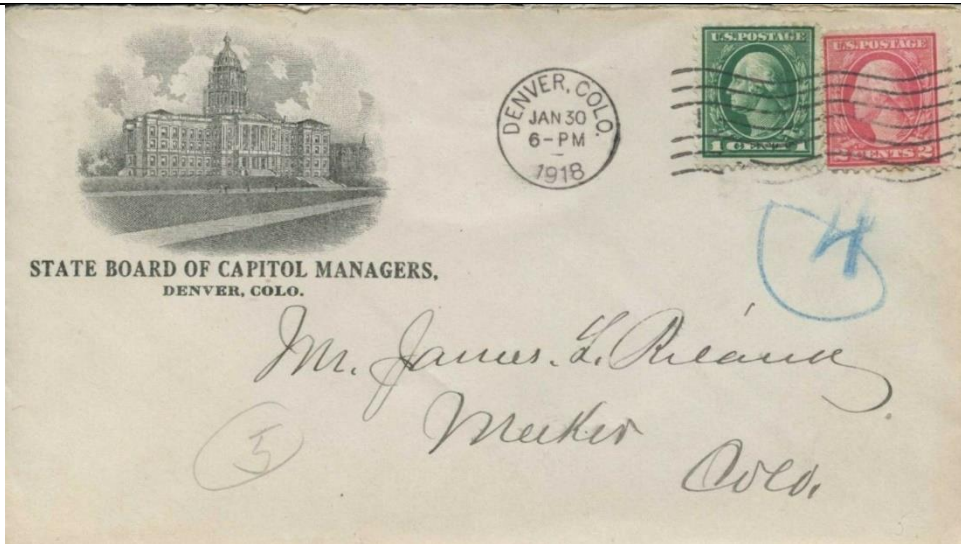 DENVER, COLO.
JAN 30
6-PM
1918
U.S. POSTAGE
1 CENT 1
U.S. POSTAGE
2 CENTS 2
STATE BOARD OF CAPITOL MANAGERS,
DENVER, COLO.
4
Mr. James. L. Riland
Meeker
Colo.
5